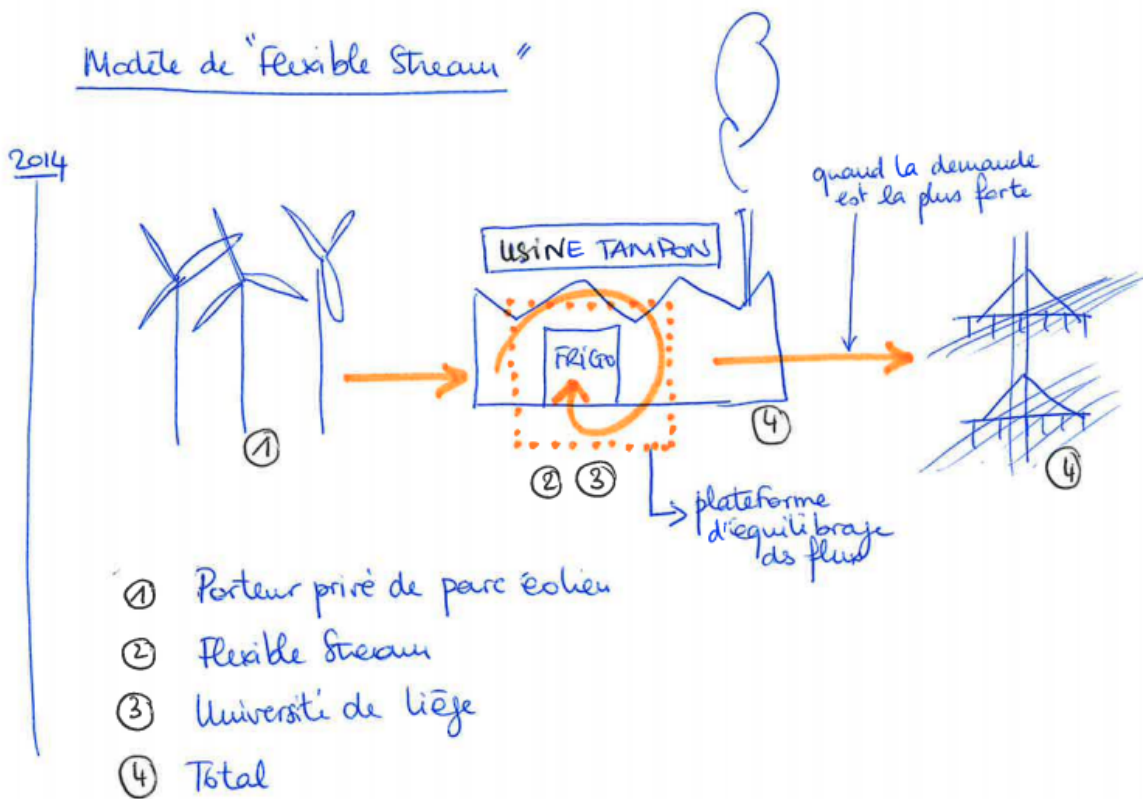 Modèle de "Flexible Stream"
2014
quand la demande
est la plus forte
USINE TAMPON
FRIGO
①
② ③
④
④
plateforme
d'équilibrage
ds flux
① Porteur privé de parc éolien
② Flexible Stream
③ Université de Liège
④ Total